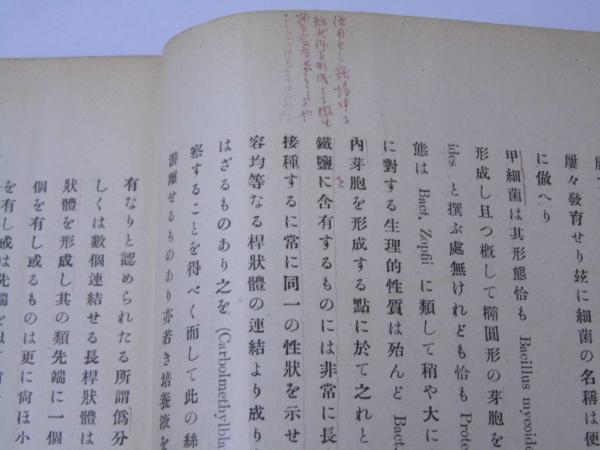 屢々發育せり玆に細菌の名稱は便
に倣へり
甲細菌は其形態恰も Bacillus mycoide
形成し且つ槪して橢圓形の芽胞を
ides と撰ぶ處無けれども恰も Prote
態は Bact. Zopfii に類して稍や大に
に對する生理的性質は殆んど Bact.
內芽胞を形成する點に於て之れと
鐵鹽に含有するものには非常に長
を
接種するに常に同一の性狀を示せ
容均等なる桿狀體の連結より成り
はざるものあり之を (Carbolmethylbla
察することを得べく而して此の絲
游離せるものあり亦若き培養液を
有なりと認められたる所謂僞分
しくは數個連結せる長桿狀體は
狀體を形成し其の類先端に一個
個を有し或るものは更に尙ほ小
を有し或は先端を